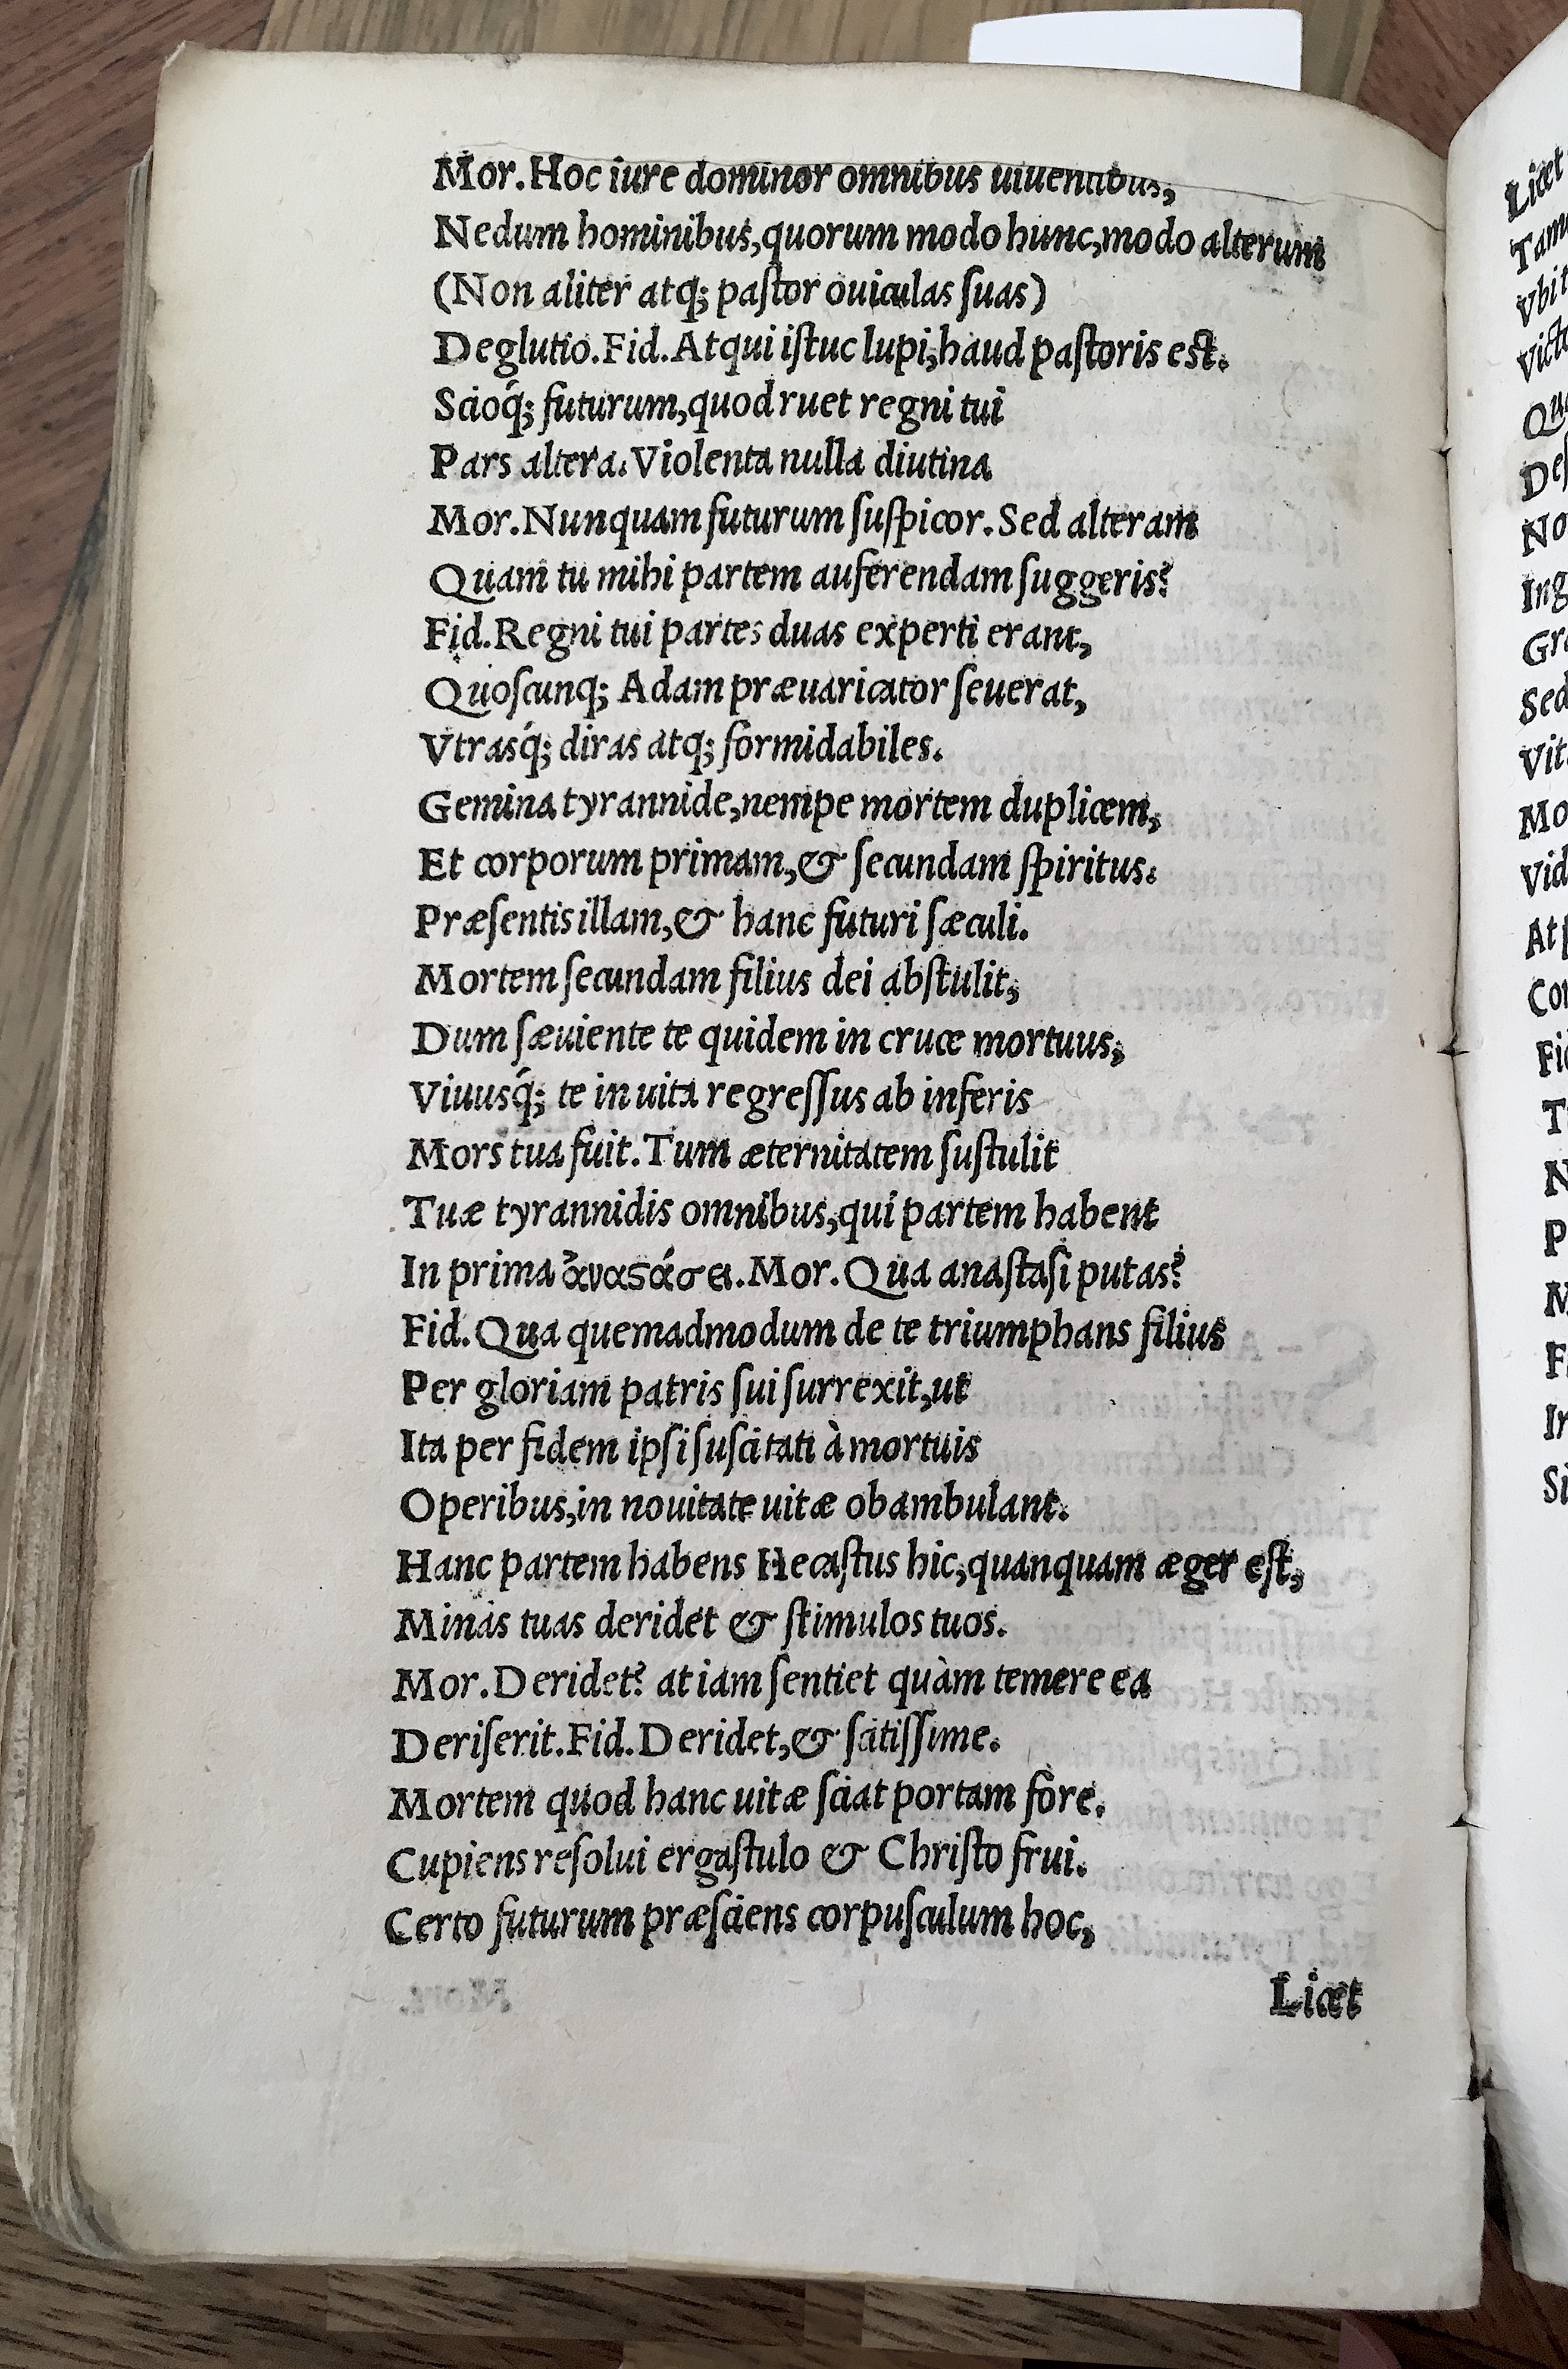 Mor. Hoc iure dominor omnibus uiuentibus,
Nedum hominibus, quorum modo hunc, modo alterum
(Non aliter atq; paſtor ouiculas ſuas)
Deglutio. Fid. Atqui iſtuc lupi, haud paſtoris est.
Scioq́; futurum, quod ruet regni tui
Pars altera. Violenta nulla diutina
Mor. Nunquam futurum ſuſpicor. Sed alteram
Quam tu mihi partem auferendam ſuggeris?
Fid. Regni tui partes duas experti erant,
Quoſcunq; Adam præuaricator ſeuerat,
Vtrasq́; diras atq; formidabiles.
Gemina tyrannide, nempe mortem duplicem,
Et corporum primam, & ſecundam ſpiritus.
Præſentis illam, & hanc futuri ſæculi.
Mortem ſecundam filius dei abſtulit,
Dum ſæuiente te quidem in cruce mortuus,
Viuusq́; te in uita regreſſus ab inferis
Mors tua fuit. Tum æternitatem ſuſtulit
Tuæ tyrannidis omnibus, qui partem habent
In prima ἀναϛάσει. Mor. Qua anaſtaſi putas?
Fid. Qua quemadmodum de te triumphans filius
Per gloriam patris ſui ſurrexit, ut
Ita per fidem ipſi ſuſcitati à mortuis
Operibus, in nouitate uitæ obambulant.
Hanc partem habens Hecaſtus hic, quanquam æger eſt,
Minas tuas deridet & ſtimulos tuos.
Mor. Deridet? at iam ſentiet quàm temere ea
Deriſerit. Fid. Deridet, & ſcitiſſime.
Mortem quod hanc uitæ ſciat portam fore.
Cupiens reſolui ergaſtulo & Chriſto frui.
Certo futurum præſciens corpuſculum hoc,
Licet